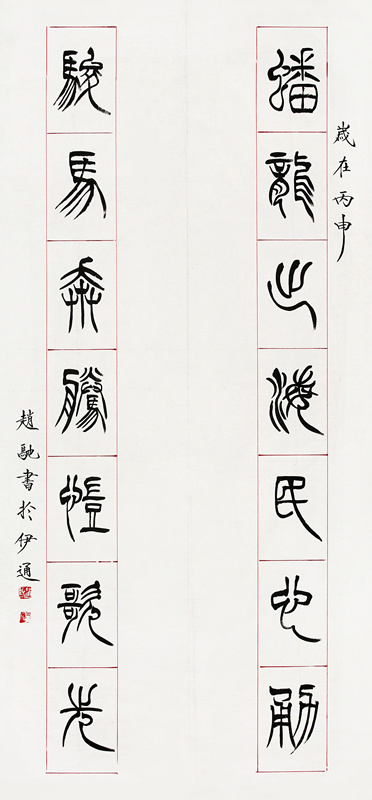 歲在丙申
蟠龍出海民心勈
駿馬奔騰愷歌先
趙馳書於伊通